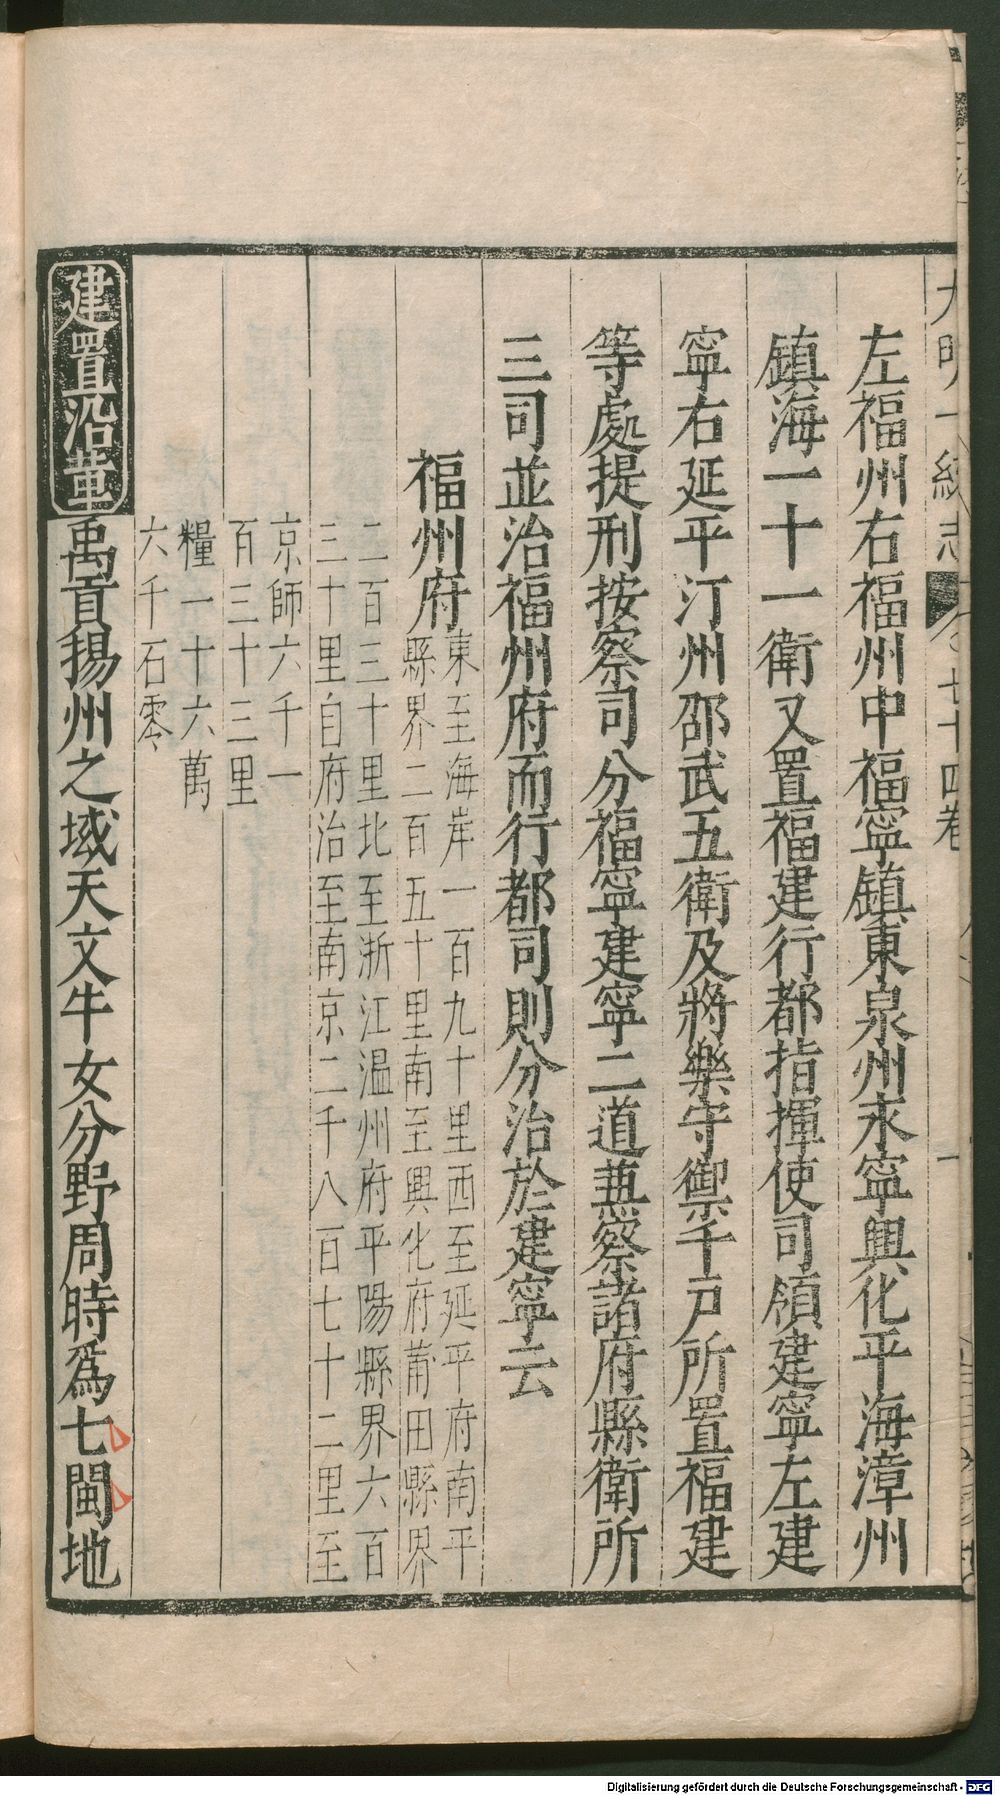 大明一統志 卷之七十四卷
左福州右福州中福寧鎮東泉州永寧興化平海漳州
鎮海一十一衛又置福建行都指揮使司領建寧左建
寧右延平汀州邵武五衛及將樂守禦千戶所置福建
等處提刑按察司分福寧建寧二道兼察諸府縣衛所
三司並治福州府而行都司則分治於建寧云
福州府
東至海岸一百九十里西至延平府南平
縣界二百五十里南至興化府莆田縣界
二百三十里北至浙江温州府平陽縣界六百
三十里自府治至南京二千八百七十二里至
京師六千一
百三十三里
糧一十六萬
六千石零
建置沿革
禹貢揚州之域天文牛女分野周時爲七閩地
Digitalisierung gefördert durch die Deutsche Forschungsgemeinschaft - DFG